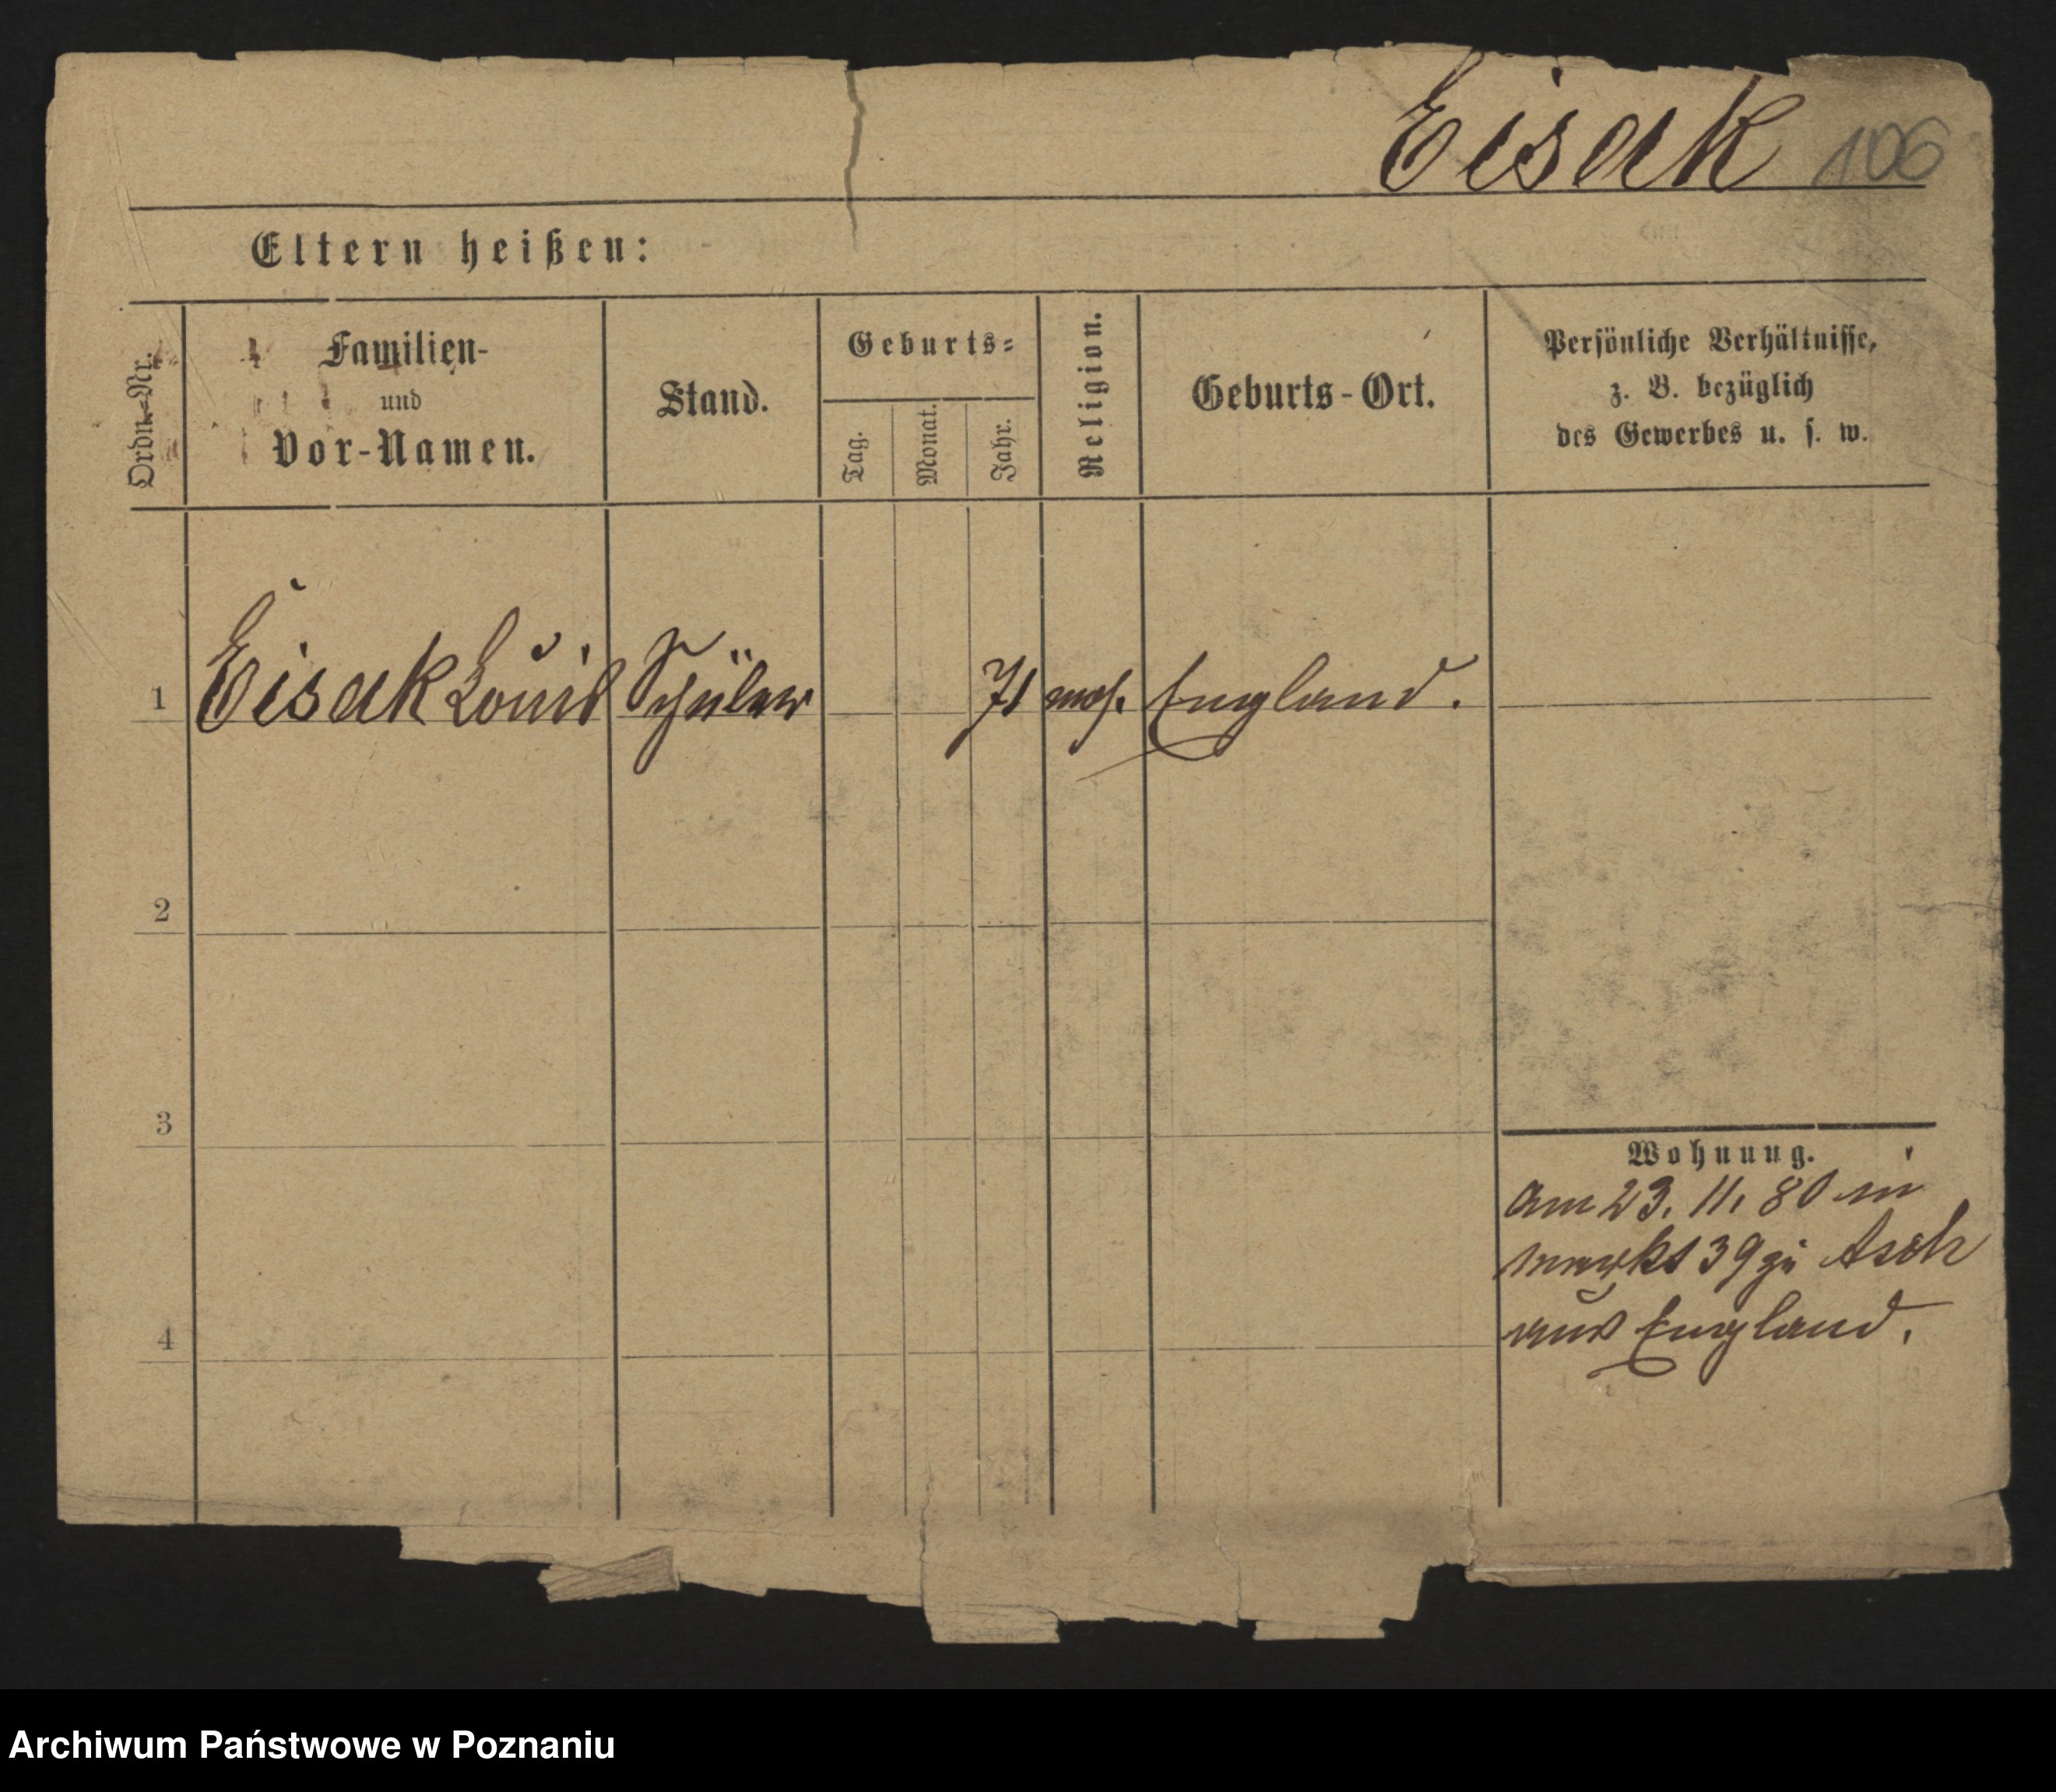 Eisak 106
Eltern heißen:
Ordn.-Nr.
Familien-
und
Vor-Namen.
Stand.
Geburts-
Tag.
Monat.
Jahr.
Religion.
Geburts-Ort.
Persönliche Verhältnisse,
z. B. bezüglich
des Gewerbes u. s. w.
1 Eisak Louis Schüler 71 mos. England.
2
3
4
Wohnung.
am 23. 11. 80 in
markt 39 zu Asch
aus England.
Archiwum Państwowe w Poznaniu